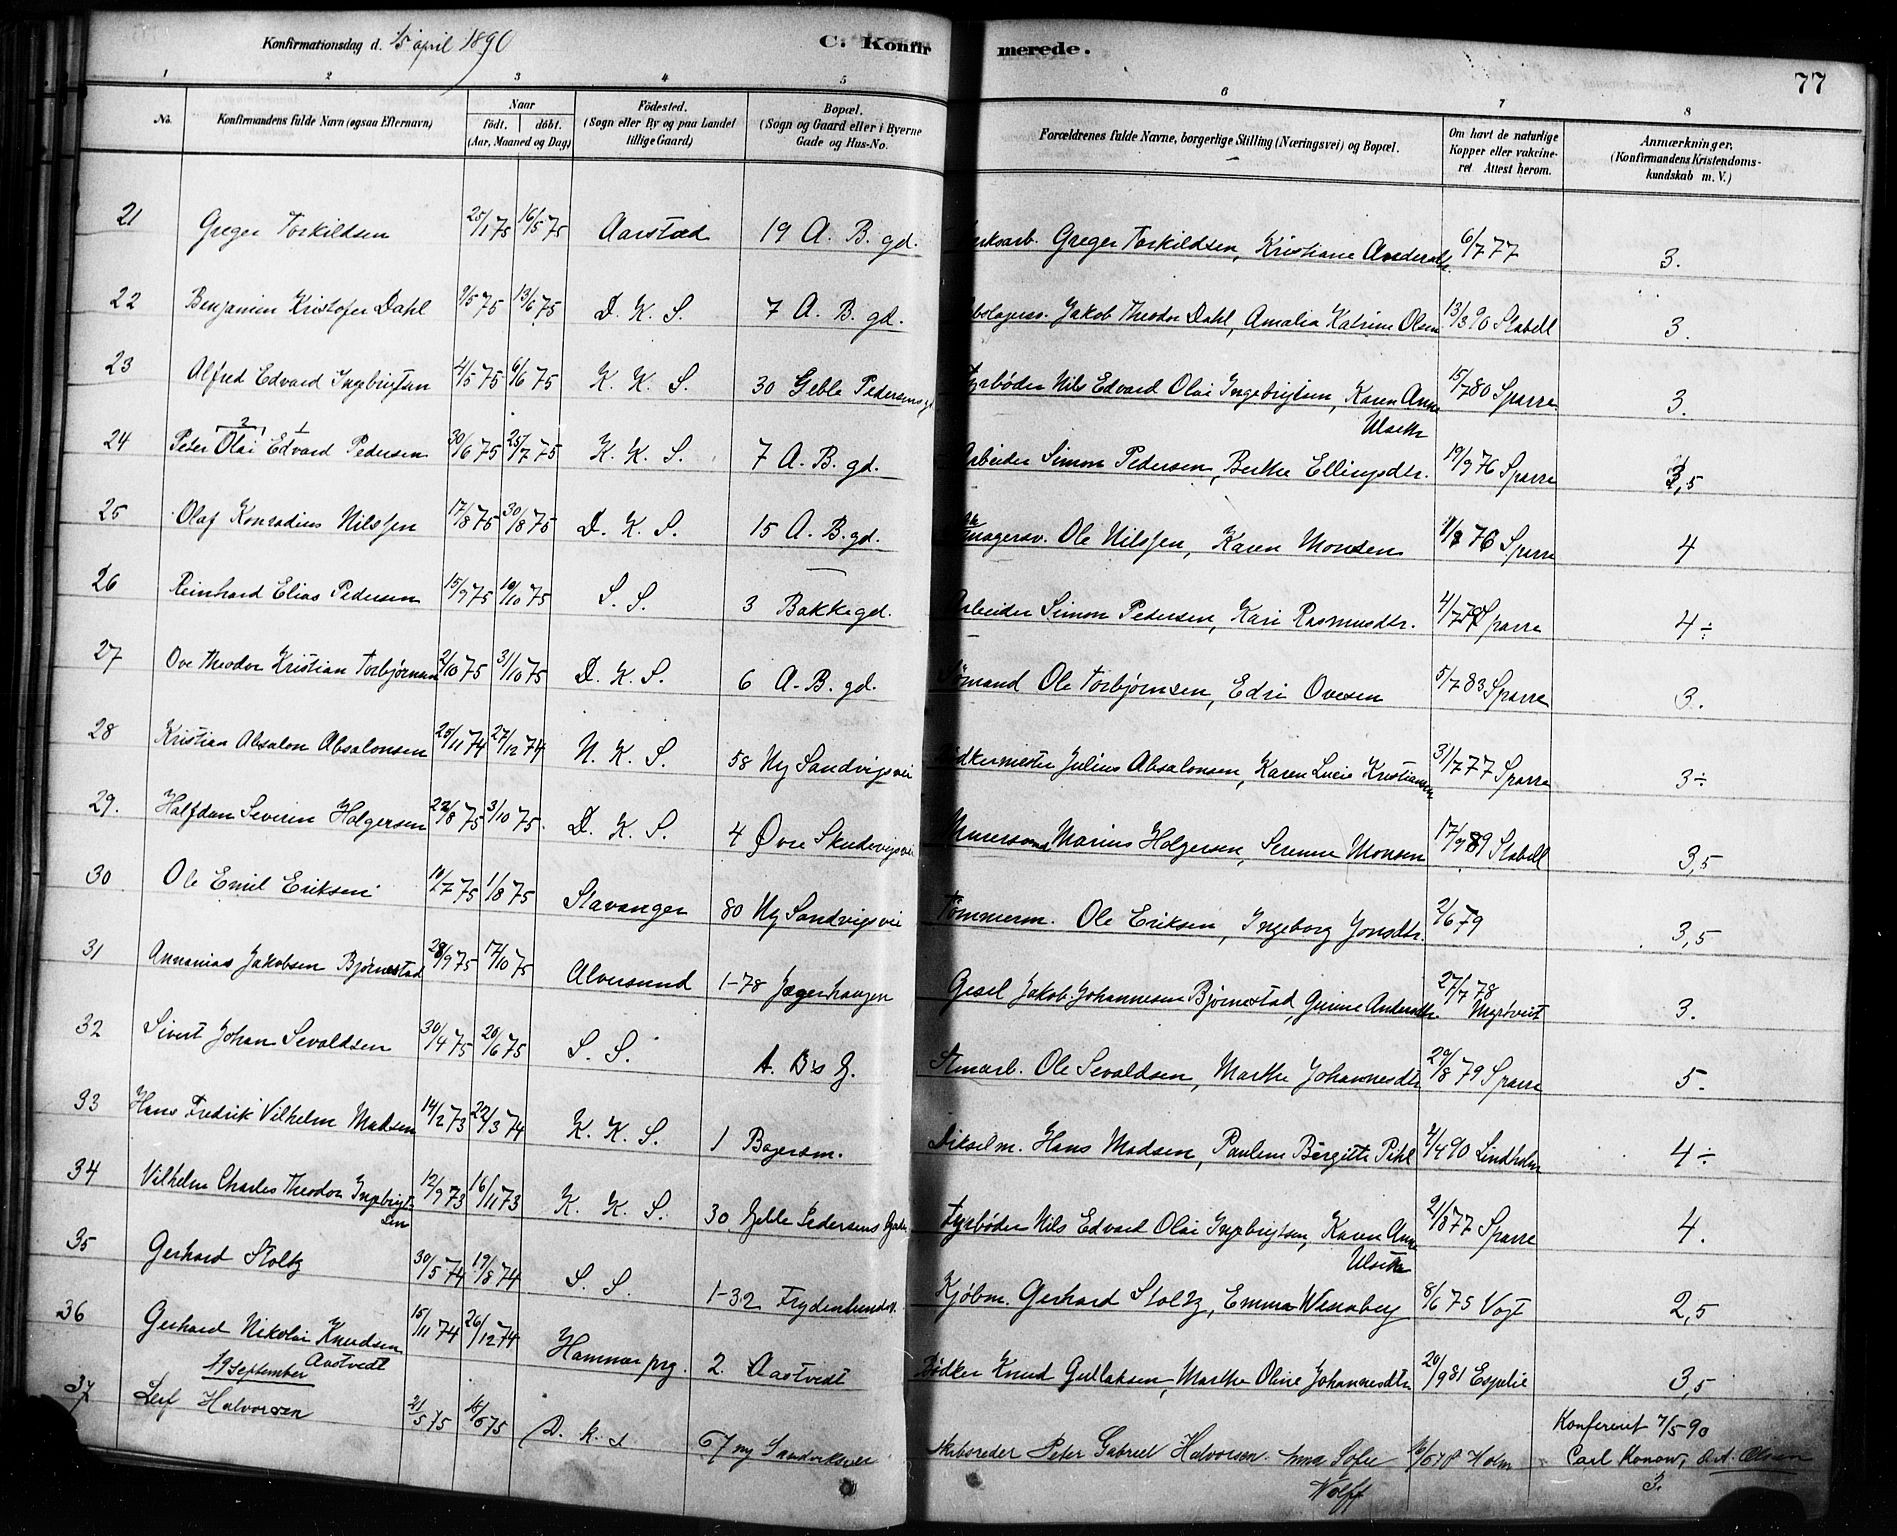 Konfirmationsdag d. 15 april 1890
C. Konfirmerede.
77
1 2 3 4 5 6 7 8
No.
Konfirmandens fulde Navn (ogsaa Efternavn)
Naar
født. døbt.
(Aar, Maaned og Dag)
Fødested.
(Sogn eller By og paa Landet
tillige Gaard)
Bopæl.
(Sogn og Gaard eller i Byerne
Gade og Hus-No.
Forældrenes fulde Navne, borgerlige Stilling (Næringsvei) og Bopæl.
Om havt de naturlige
Kopper eller vakcine-
ret Attest herom.
Anmærkninger.
(Konfirmandens Kristendoms-
kundskab m. V.)
21 Greger Torkildsen 25/1 75 16/5 75 Aarstad 19 A. B. gd. Greger Torkildsen, Kristiane Andersdtr 6/7 77 3.
22 Benjamin Kristofer Dahl 9/5 75 13/6 75 D. K. S. 7 A. B. gd. Jakob Theodor Dahl, Amalia Katrine Olsen 13/3 90 Stabell 3.
23 Alfred Edvard Ingebrigtsen 4/5 75 6/6 75 K. K. S. 30 Geble Pedersens g. Fyrbøder Nils Edvard Olai Ingebrigtsen, Karen Anne 15/7 80 Sparre 3.
Ulseth
2 1
24 Peter Olai Edvard Pedersen 30/6 75 25/7 75 K. K. S. 7 A. B. gd. Arbeider Simon Pedersen, Berthe Ellingsdtr. 19/9 76 Sparre 3,5
25 Olaf Konradius Nilssen 17/8 75 30/8 75 D. K. S. 15 A. B. gd. Ole Nilssen, Karen Monsen 76 Sparre 4
26 Reinhard Elias Pedersen 15/9 75 10/10 75 S. S. 3 Bakkegd. Arbeider Simon Pedersen, Kari Rasmusdtr. Sparre 4÷
27 Ove Theodor Kristian Torbjørnsen 2/10 75 31/10 75 D. K. S. 6 A. B. gd. Sømand Ole Torbjørnsen, Edri Ovesen 5/7 83 Sparre 3.
28 Kristian Absalon Absalonsen 25/11 74 27/12 74 N. K. S. 58 Ny Sandvigsvei Bødkermester Julius Absalonsen, Karen Lucie Kristiansen 31/7 77 Sparre 3÷
29. Halfdan Severin Holgersen 22/8 75 3/10 75. D. K. S. 4 Øvre Skudevigsvei Marius Holgersen, Serenne Monsen 17/9 89 Stabell 3,5
30 Ole Emil Eriksen 10/7 75 1/8 75 Stavanger 80 Ny Sandvigsvei Tømmerm. Ole Eriksen, Ingeborg Jonsdtr. 2/6 79 3,5
31 Annanias Jakobsen Bjørnestad 28/9 75 17/10 75 Alversund 1-78 Jægerhaugen Gesel Jakob Johannesen Bjørnestad, Gurine Andersdtr. 27/7 78 3.
Myrtveit
32 Sivert Johan Sevaldsen 30/4 75 20/6 75 S. S. A. Bs G. Stenarb. Ole Sevaldsen, Marthe Johannesdtr 29/8 79 Sparre 5.
33 Hans Fredrik Vilhelm Madsen 14/12 73 22/3 74 K. K. S. 1 Bagersm. Hans Madsen, Pauline Birgitte Pihl 4/4 90 Lindholm 4÷
34 Vilhelm Charles Theodor Ingebrigt- 12/9 73 16/11 73 K. K. S. 30 Geble Pedersens Gade Fyrbøder Nils Edvard Olai Ingebrigtsen, Karen Anne 21/8 77 Sparre 4.
sen
Ulseth
35 Gerhard Stoltz 30/5 74 19/8 74 S. S. 1-32 Frydenlundsv. Kjøbm. Gerhard Stoltz, Emma Wennberg 8/6 75 Vogt 2,5
36 Gerhard Nikolai Knudsen 15/11 74 26/12 74 Hammer prg. 2 Aastvedt Bødker Knud Gullaksen, Marthe Oline Johannesdtr 20/9 81 Espelie 3,5
Aastvedt
19 September
37 Leif Halvorsen 21/5 75 D. K. S 67 ny Sandviksvei Skibsreder Peter Gabriel Halvorsen. Anna Sofie Holm
Wolff
Konfereret 7/5 90
Carl Konow, O. A. Olsen
3.